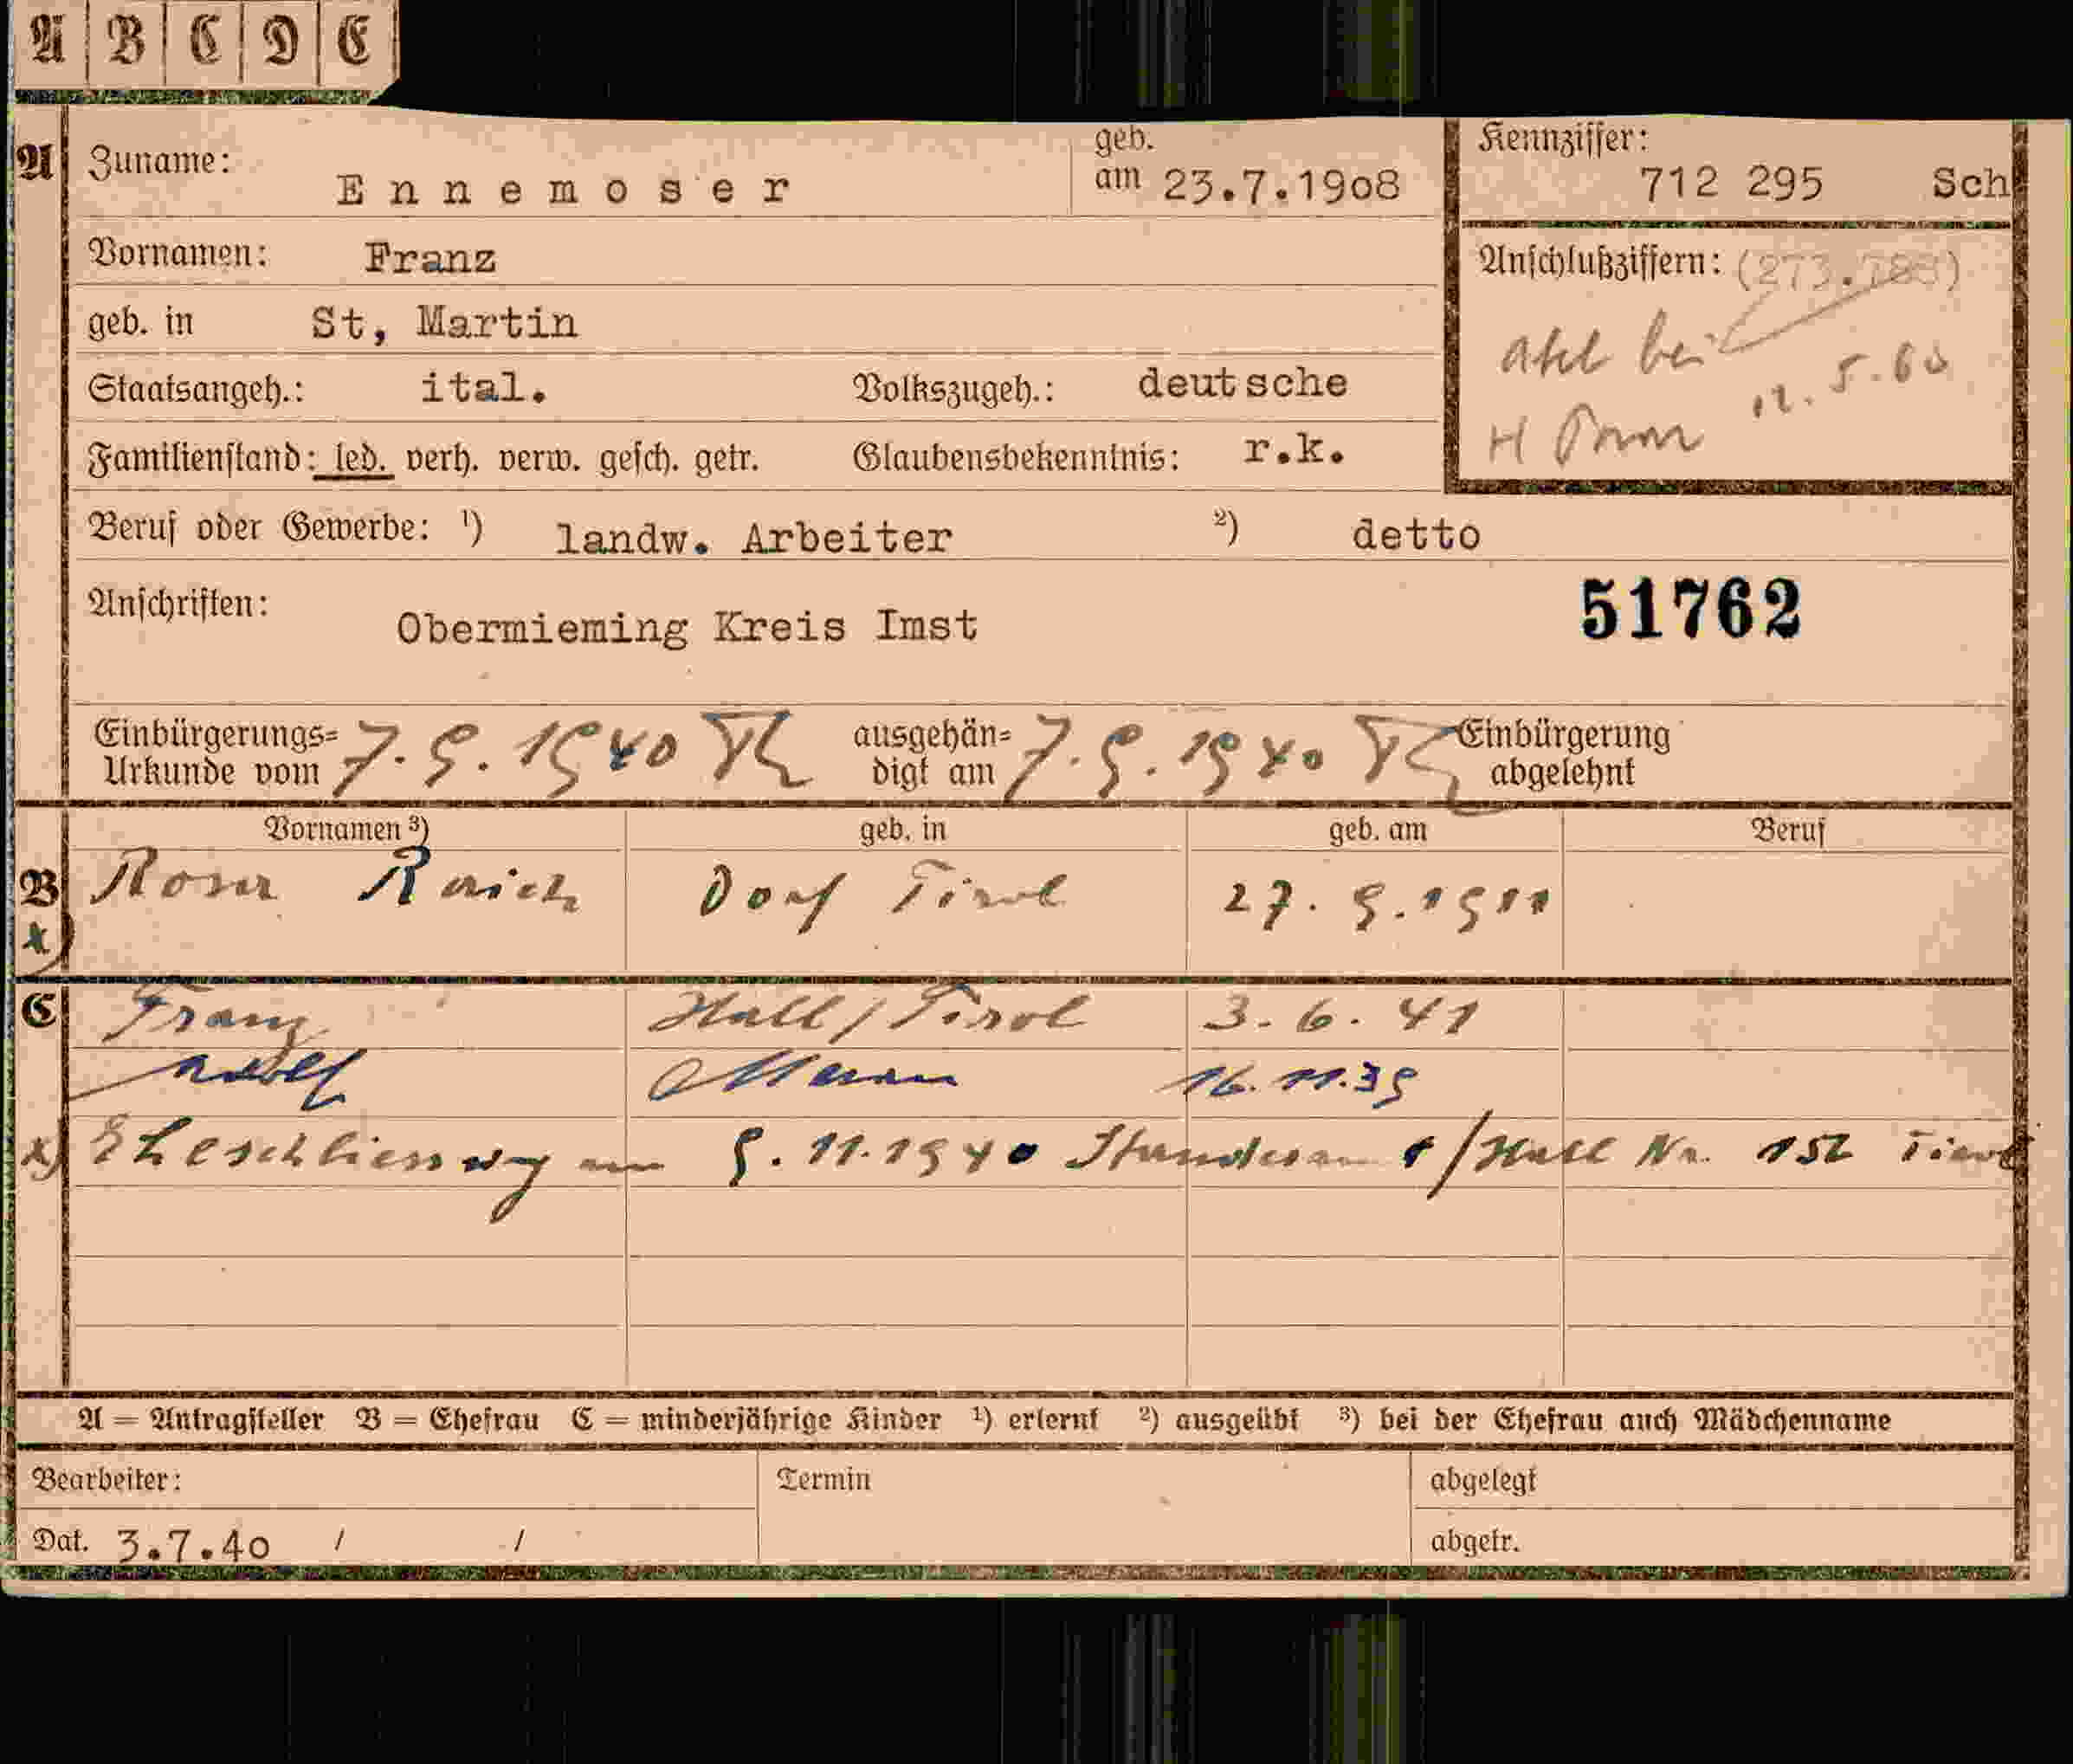 A B C D E
A Zuname: Ennemoser geb. am 23.7.1908 Kennziffer: 712 295 Sch
Vornamen: Franz Anschlußziffern: (273.788)
geb. in St, Martin
Staatsangeh.: ital. Volkszugeh.: deutsche
Familienstand: led. verh. verw. gesch. getr. Glaubensbekenntnis: r.k.
bei
12.5.60
H
Beruf oder Gewerbe: ¹) landw. Arbeiter ²) detto
Anschriften: Obermieming Kreis Imst 51762
Einbürgerungs= ausgehän= Einbürgerung
Urkunde vom 7.9.1940 digt am 7.9.1940 abgelehnt
Vornamen ³) geb. in geb. am Beruf
B Rosa Raich Dorf Tirol 27.9.1911
x)
C Franz Hall/Tirol 3.6.41
Adolf Meran 16.11.39
x) Eheschliessung am 9.11.1940 Standesamt/Hall Nr. 152 Tirol
A = Antragsteller B = Ehefrau C = minderjährige Kinder ¹) erlernt ²) ausgeübt ³) bei der Ehefrau auch Mädchenname
Bearbeiter: Termin abgelegt
Dat. 3.7.40 / / abgetr.